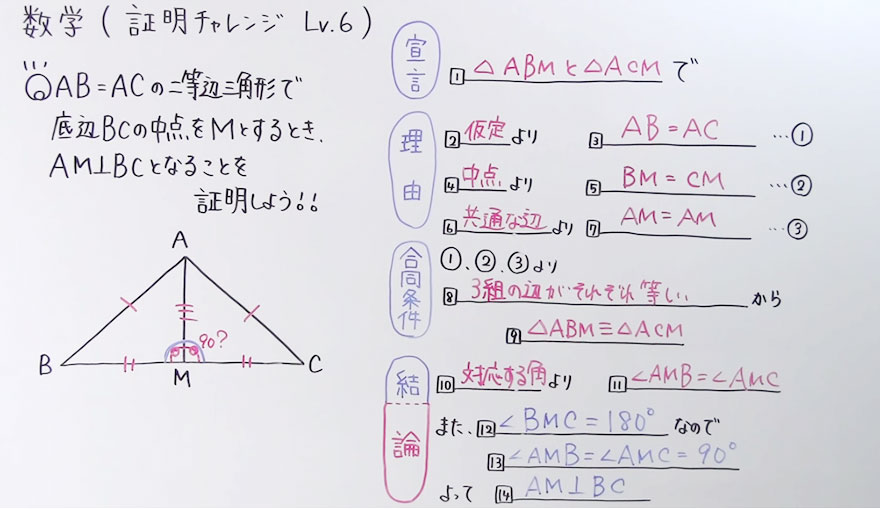 数学 ( 証明チャレンジ Lv.6 )
Q AB=ACの二等辺三角形で
底辺BCの中点をMとするとき、
AM⊥BCとなることを
証明しよう!!
A
90°?
B
M
C
宣言
1 △ABMと△ACMで
理由
2 仮定より 3 AB=AC …①
4 中点より 5 BM=CM …②
6 共通な辺より 7 AM=AM …③
合同条件
①、②、③より
8 3組の辺がそれぞれ等しいから
9 △ABM≡△ACM
結論
10 対応する角より 11 ∠AMB=∠AMC
また、12 ∠BMC=180°なので
13 ∠AMB=∠AMC=90°
よって 14 AM⊥BC